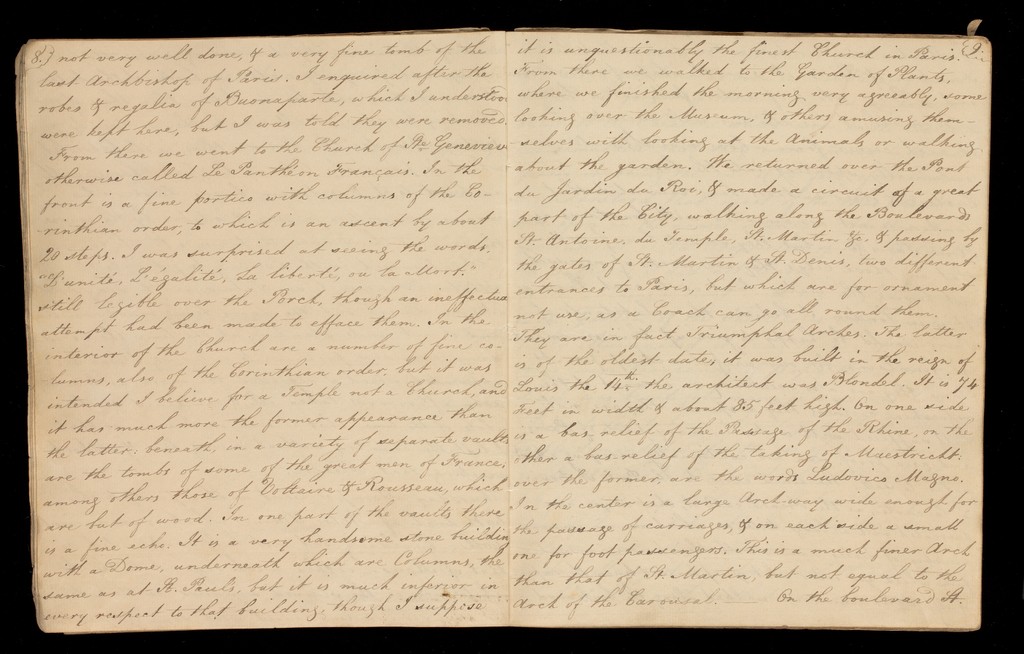 8.) not very well done, & a very fine tomb of the
last Archbishop of Paris. I enquired after the
robes & regalia of Buonaparte, which I understoo
were kept here, but I was told they were removed.
From there we went to the Church of Ste Geneviev
otherwise called Le Panthéon Français. In the
front is a fine portico with columns of the Co-
rinthian order, to which is an ascent by about
20 steps. I was surprised at seeing the words,
"L'unité, L'égalité, La liberté, ou la Mort."
still legible over the Porch, though an ineffectua
attempt had been made to efface them. In the
interior of the Church are a number of fine co-
lumns, also of the Corinthian order, but it was
intended I believe for a Temple not a Church, and
it has much more the former appearance than
the latter: beneath, in a variety of separate vaults
are the tombs of some of the great men of France,
among others those of Voltaire & Rousseau, which
are but of wood. In one part of the vaults there
is a fine echo. It is a very handsome stone buildin
with a Dome, underneath which are Columns, the
same as at St. Paul's, but it is much inferior in
every respect to that building, though I suppose
it is unquestionably the finest Church in Paris. (9.
From there we walked to the Garden of Plants,
where we finished the morning very agreeably, some
looking over the Museum, & others amusing them-
selves with looking at the Animals or walking
about the garden. We returned over the Pont
du Jardin du Roi, & made a circuit of a great
part of the City, walking along the Boulevards
St. Antoine, du Temple, St. Martin &c. & passing by
the gates of St. Martin & St. Denis, two different
entrances to Paris, but which are for ornament
not use, as a Coach can go all round them.
They are in fact Triumphal Arches. The latter
is of the oldest date, it was built in the reign of
Louis the 14th. the architect was Blondel. It is 74
Feet in width & about 85 feet high. On one side
is a bas relief of the Passage of the Rhine, on the
other a bas-relief of the taking of Maestricht:
over the former, are the words Ludovico Magno.
In the center is a large Arch-way wide enough for
the passage of carriages, & on each side a small
one for foot passengers. This is a much finer Arch
than that of St. Martin, but not equal to the
Arch of the Carousal. — On the boulevard St.